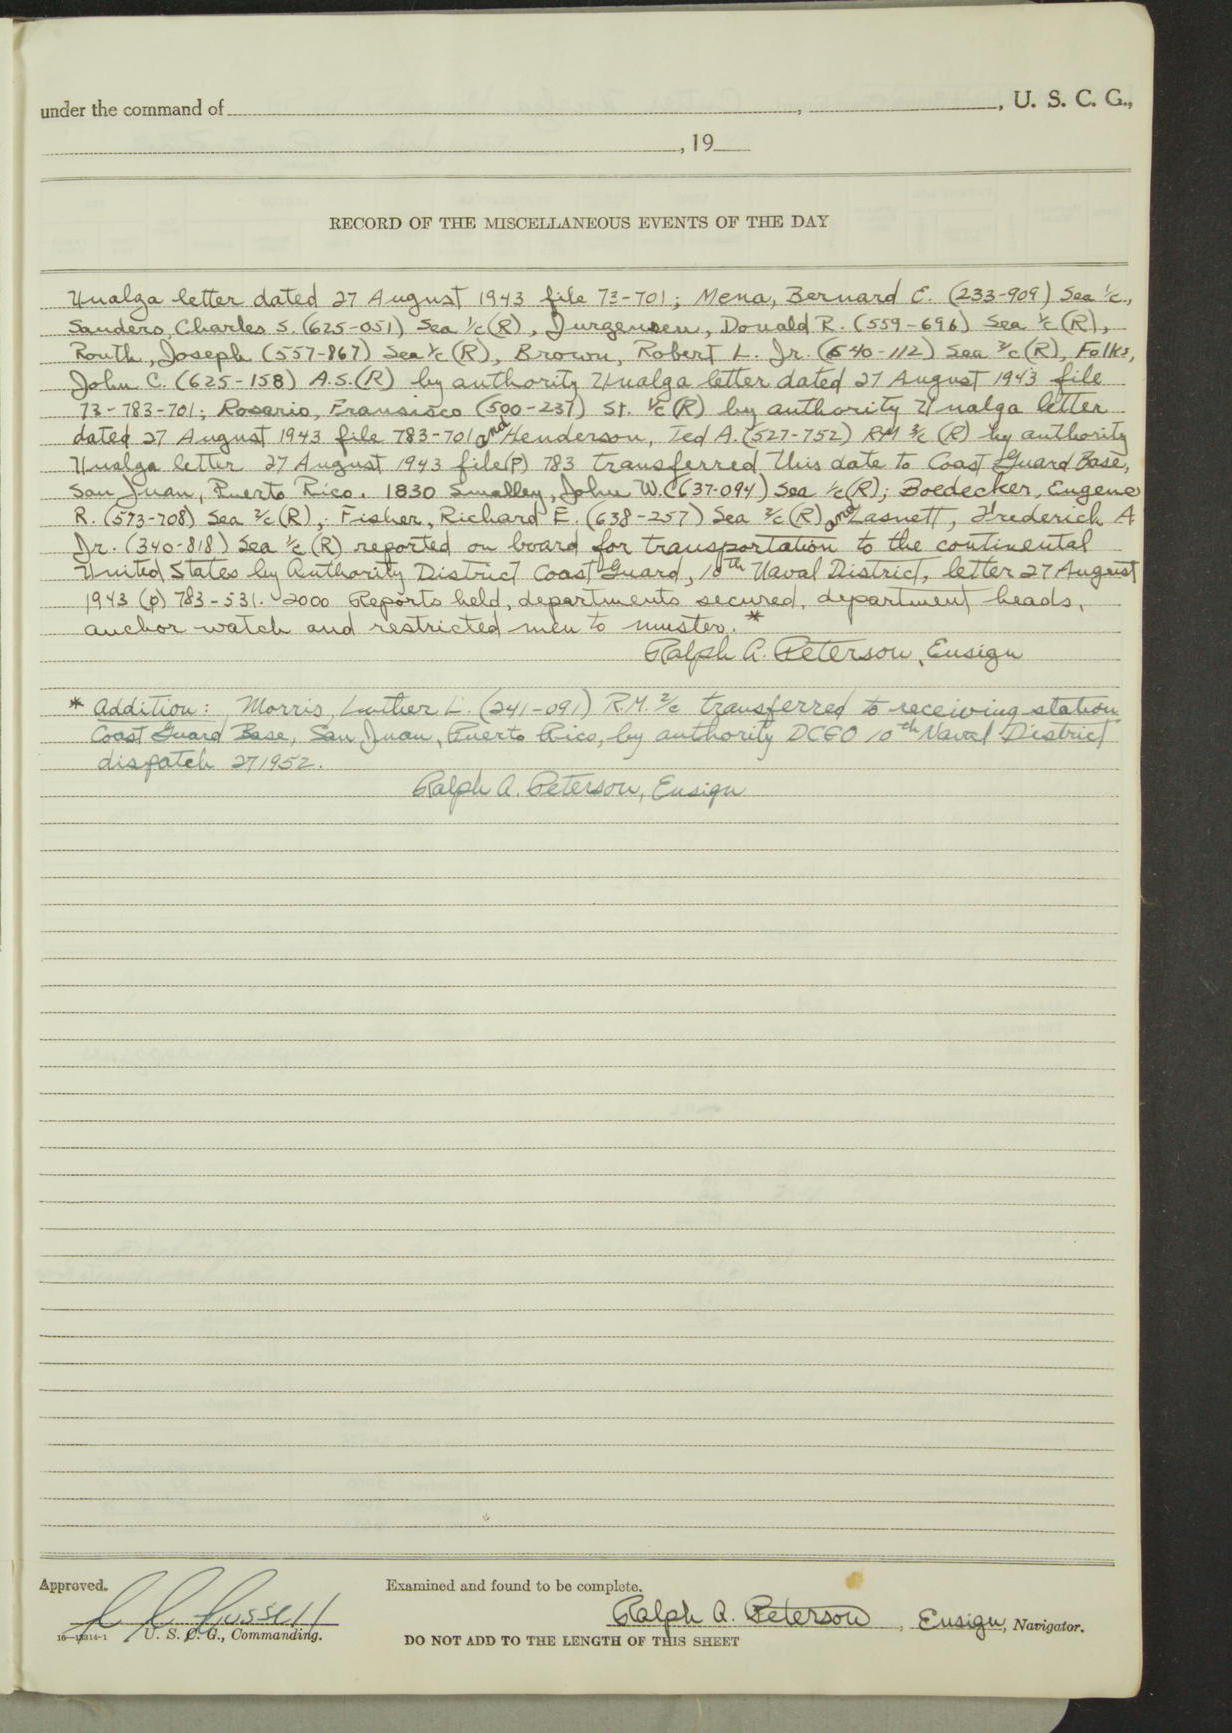 under the command of , , U. S. C. G.,
, 19
RECORD OF THE MISCELLANEOUS EVENTS OF THE DAY
Unalga letter dated 27 August 1943 file 73-701; Mena, Bernard E. (233-909) Sea 1/c.,
Sanders, Charles S. (625-051) Sea 1/c (R), Jurgensen, Donald R. (559-696) Sea 1/c (R),
Routh, Joseph (557-867) Sea 1/c (R), Brown, Robert L. Jr. (640-112) Sea 2/c (R), Folks,
John C. (625-158) A.S. (R) by authority Unalga letter dated 27 August 1943 file
73-783-701; Rosario, Fransisco (500-237) St. 1/c (R) by authority Unalga letter
dated 27 August 1943 file 783-701 and Henderson, Ted A. (527-752) RM 3/c (R) by authority
Unalga letter 27 August 1943 file (P) 783 transferred this date to Coast Guard Base,
San Juan, Puerto Rico. 1830 Smalley, John W. (637-094) Sea 1/c (R); Boedecker, Eugene
R. (573-708) Sea 2/c (R); Fisher, Richard E. (638-257) Sea 2/c (R) and Lasnett, Frederick A
Jr. (340-818) Sea 1/c (R) reported on board for transportation to the continental
United States by Authority District Coast Guard, 10th Naval District, letter 27 August
1943 (p) 783-531. 2000 Reports held, departments secured, department heads,
anchor watch and restricted men to muster. *
Ralph A. Peterson, Ensign
* Addition: Morris, Luther L. (241-091) R.M. 2/c transferred to receiving station
Coast Guard Base, San Juan, Puerto Rico, by authority DCGO 10th Naval District
dispatch 271952.
Ralph A. Peterson, Ensign
Approved. Examined and found to be complete.
Russell Ralph A. Peterson, Ensign, Navigator.
U. S. C. G., Commanding.
DO NOT ADD TO THE LENGTH OF THIS SHEET